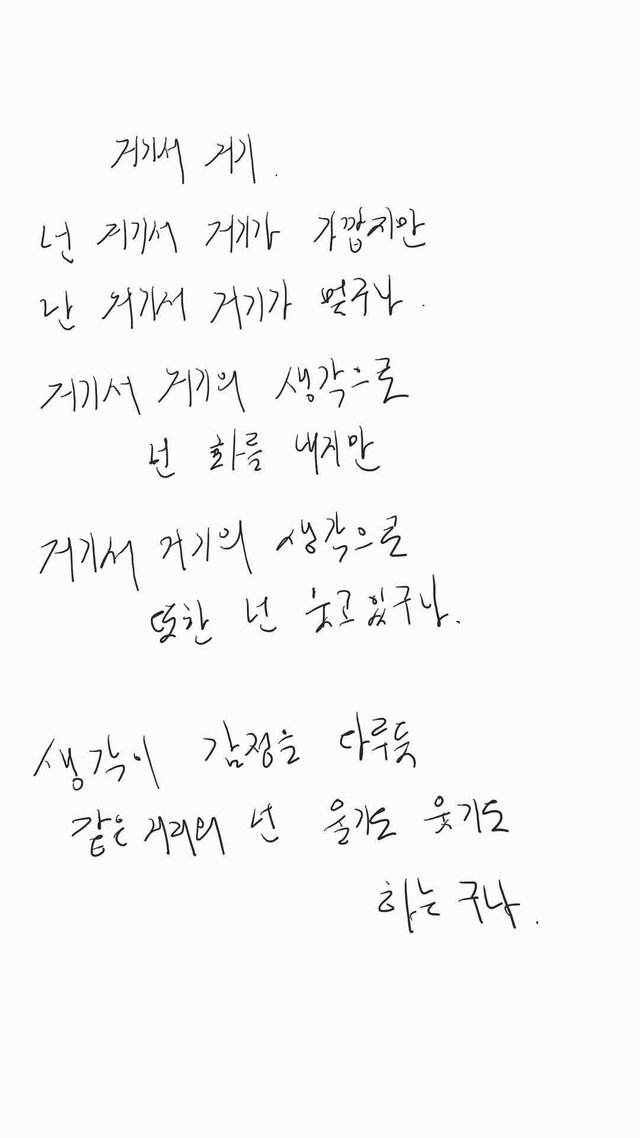 거기서 거기.
넌 거기서 거기가 가깝지만
난 거기서 거기가 멀구나.
거기서 거기의 생각으로
넌 화를 내지만
거기서 거기의 생각으로
또한 넌 웃고 있구나.
생각이 감정을 다루듯
같은 거리의 넌 울기도 웃기도
하는구나.